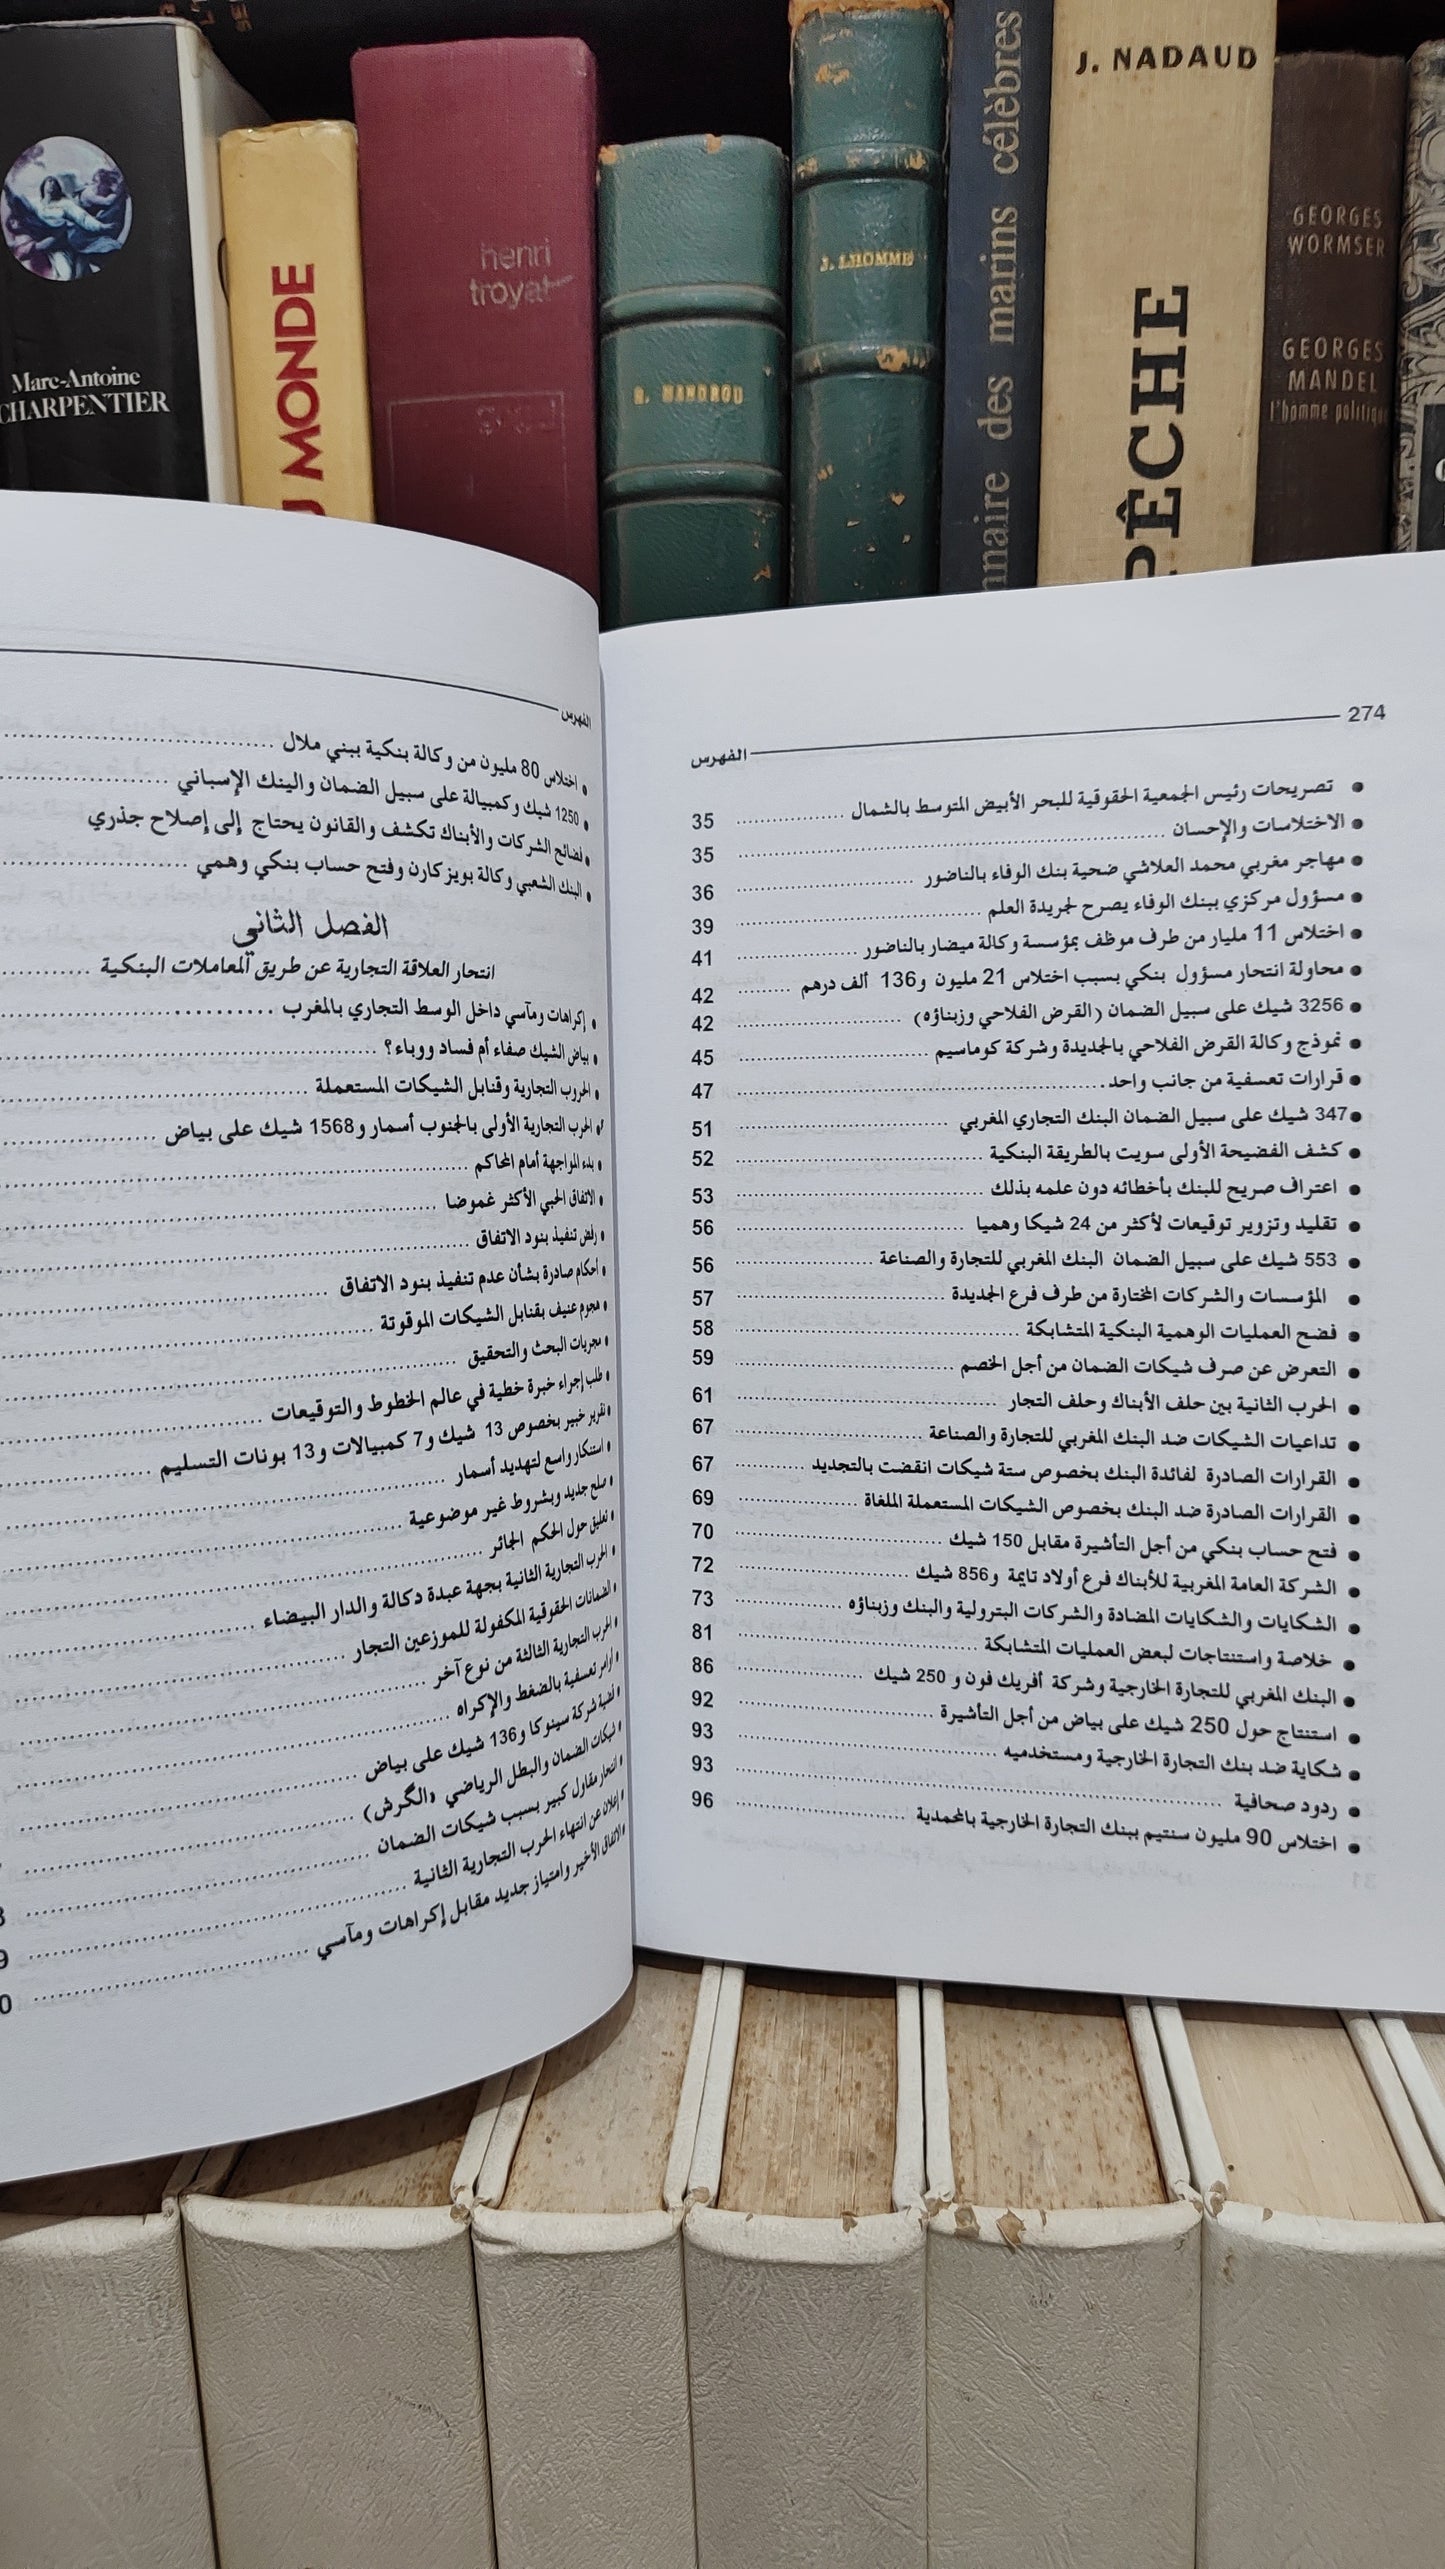 Marc-Antoine
CHARPENTIER
MONDE
henri
troyat
R. MANDROU
J. LHOMME
nnaire des marins célèbres
J. NADAUD
PÊCHE
GEORGES
WORMSER
GEORGES
MANDEL
l'homme politique
274 الفهرس
• تصريحات رئيس الجمعية الحقوقية للبحر الأبيض المتوسط بالشمال 35
• الاختلاسات والإحسان 35
• مهاجر مغربي محمد العلاشي ضحية بنك الوفاء بالناضور 36
• مسؤول مركزي ببنك الوفاء يصرح لجريدة العلم 39
• اختلاس 11 مليار من طرف موظف بمؤسسة وكالة ميضار بالناضور 41
• محاولة انتحار مسؤول بنكي بسبب اختلاس 21 مليون و136 ألف درهم 42
• 3256 شيك على سبيل الضمان (القرض الفلاحي وزبناؤه) 42
• نموذج وكالة القرض الفلاحي بالجديدة وشركة كوماسيم 45
• قرارات تعسفية من جانب واحد 47
• 347 شيك على سبيل الضمان البنك التجاري المغربي 51
• كشف الفضيحة الأولى سويت بالطريقة البنكية 52
• اعتراف صريح للبنك بأخطائه دون علمه بذلك 53
• تقليد وتزوير توقيعات لأكثر من 24 شيكا وهميا 56
• 553 شيك على سبيل الضمان البنك المغربي للتجارة والصناعة 56
• المؤسسات والشركات المختارة من طرف فرع الجديدة 57
• فضح العمليات الوهمية البنكية المتشابكة 58
• التعرض عن صرف شيكات الضمان من أجل الخصم 59
• الحرب الثانية بين حلف الأبناك وحلف التجار 61
• تداعيات الشيكات ضد البنك المغربي للتجارة والصناعة 67
• القرارات الصادرة لفائدة البنك بخصوص ستة شيكات انقضت بالتجديد 67
• القرارات الصادرة ضد البنك بخصوص الشيكات المستعملة الملغاة 69
• فتح حساب بنكي من أجل التأشيرة مقابل 150 شيك 70
• الشركة العامة المغربية للأبناك فرع أولاد تايمة و856 شيك 72
• الشكايات والشكايات المضادة والشركات البترولية والبنك وزبناؤه 73
• خلاصة واستنتاجات لبعض العمليات المتشابكة 81
• البنك المغربي للتجارة الخارجية وشركة أفريك فون و 250 شيك 86
• استنتاج حول 250 شيك على بياض من أجل التأشيرة 92
• شكاية ضد بنك التجارة الخارجية ومستخدميه 93
• ردود صحافية 93
• اختلاس 90 مليون سنتيم ببنك التجارة الخارجية بالمحمدية 96
الفهرس
• اختلاس 80 مليون من وكالة بنكية ببني ملال
• 1250 شيك وكمبيالة على سبيل الضمان والبنك الإسباني
• فضائح الشركات والأبناك تكشف والقانون يحتاج إلى إصلاح جذري
• البنك الشعبي وكالة بويزكارن وفتح حساب بنكي وهمي
الفصل الثاني
انتحار العلاقة التجارية عن طريق المعاملات البنكية
• إكراهات ومآسي داخل الوسط التجاري بالمغرب
• بياض الشيك صفاء أم فساد ووباء؟
• الحروب التجارية وقنابل الشيكات المستعملة
• الحرب التجارية الأولى بالجنوب أسمار و1568 شيك على بياض
• بدء المواجهة أمام المحاكم
• الاتفاق الحبي الأكثر غموضا
• رفض تنفيذ بنود الاتفاق
• أحكام صادرة بشأن عدم تنفيذ بنود الاتفاق
• هجوم عنيف بقنابل الشيكات الموقوتة
• مجريات البحث والتحقيق
• طلب إجراء خبرة خطية في عالم الخطوط والتوقيعات
• تقرير خبير بخصوص 13 شيك و7 كمبيالات و13 بونات التسليم
• استنكار واسع لتهديد أسمار
• صلح جديد وبشروط غير موضوعية
• تعليق حول الحكم الجائر
• الحرب التجارية الثانية بجهة عبدة دكالة والدار البيضاء
• الضمانات الحقوقية المكفولة للموزعين التجار
• الحرب التجارية الثالثة من نوع آخر
• أوامر تعسفية بالضغط والإكراه
• قضية شركة سينوكا و136 شيك على بياض
• شيكات الضمان والبطل الرياضي «الگرش)
• انتحار مقاول كبير بسبب شيكات الضمان
• إعلان عن انتهاء الحرب التجارية الثانية
• الاتفاق الأخير وامتياز جديد مقابل إكراهات ومآسي